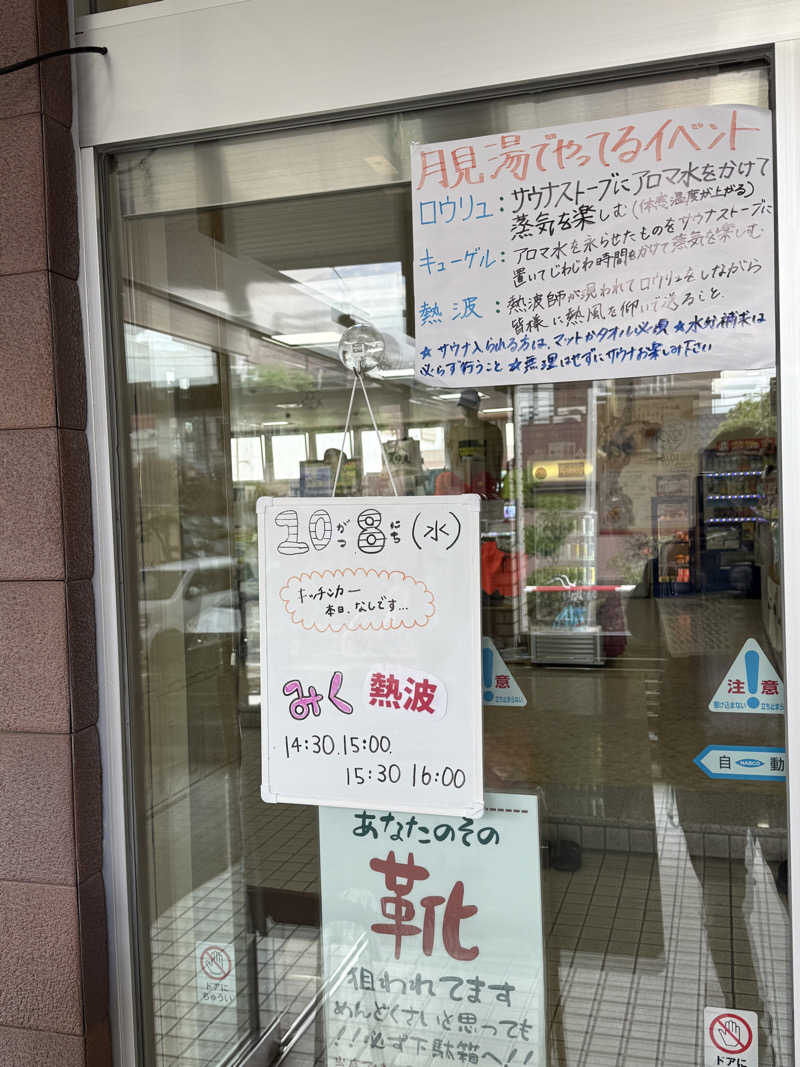 月見湯でやってるイベント
ロウリュ：サウナストーブにアロマ水をかけて
蒸気を楽しむ(体感温度が上がる)
キューゲル：アロマ水を氷らせたものをサウナストーブに
置いてじわじわ時間をかけて蒸気を楽しむ
熱波：熱波師が現われてロウリュをしながら
皆様に熱風を仰いで送ること。
★サウナ入られる方は、マットかタオル必須★水分補求は
必らず行うこと★無理はせずにサウナお楽しみ下さい
10がつ8にち(水)
キッチンカー
本日、なしです…
みく熱波
14:30.15:00.
15:30 16:00
注意
立ち止まらない
注意
駆け込まない 立ち止まらない
自 NABCO 動
あなたのその
靴
狙われてます
めんどくさいと思っても
!!必ず下駄箱へ!!
ドアに
ちゅうい
ドアに